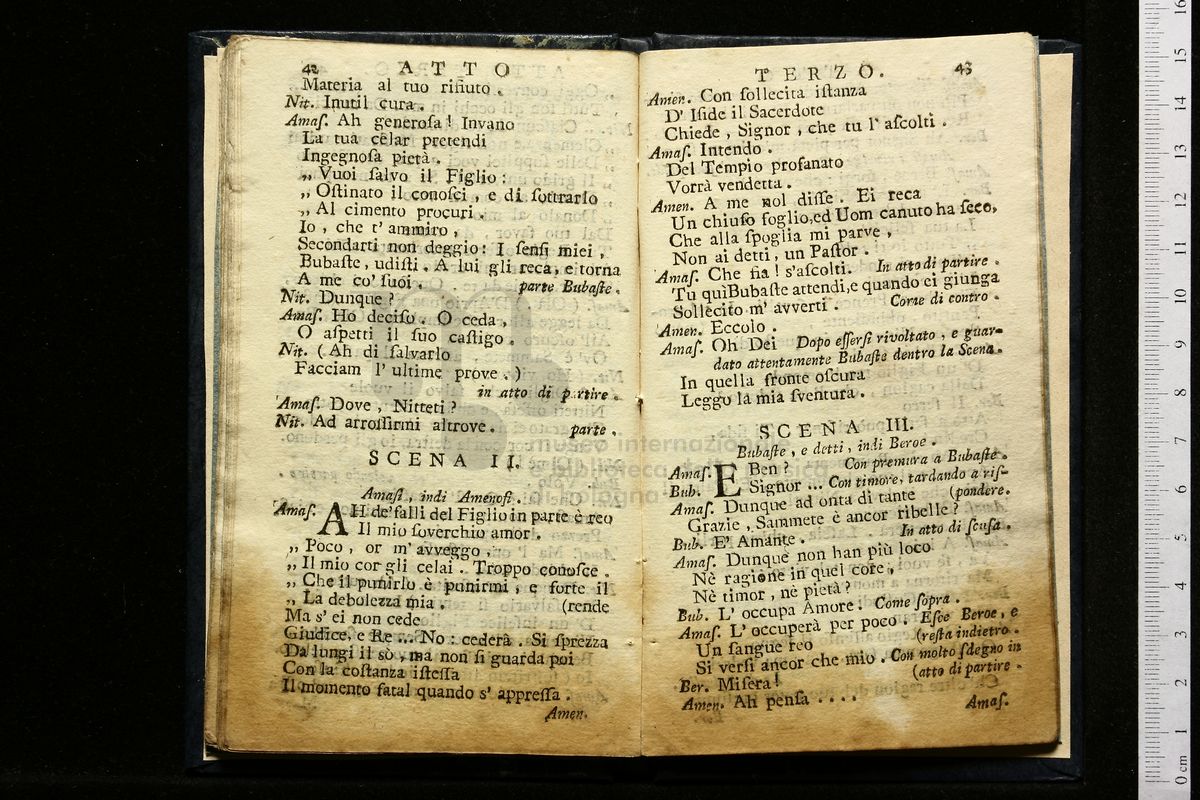 42 ATTO
Materia al tuo rifiuto.
Nit. Inutil cura.
Amaſ. Ah generoſa! Invano
La tua celar pretendi
Ingegnoſa pietà.
„ Vuoi ſalvo il Figlio:
„ Oſtinato il conoſci, e di ſottrarlo
„ Al cimento procuri.
Io, che t'ammiro,
Secondarti non deggio: I ſenſi miei,
Bubaſte, udiſti. A lui gli reca, e torna
A me co' ſuoi. parte Bubaſte.
Nit. Dunque?
Amaſ. Ho deciſo. O ceda,
O aſpetti il ſuo caſtigo.
Nit. (Ah di ſalvarlo
Facciam l'ultime prove.)
in atto di partire.
Amaſ. Dove, Nitteti?
Nit. Ad arroſſirmi altrove. parte.
SCENA II.
Amaſi, indi Amenofi.
Amaſ. AH de' falli del Figlio in parte è reo
Il mio ſoverchio amor!
„ Poco, or m'avveggo,
„ Il mio cor gli celai. Troppo conoſce.
„ Che il punirlo è punirmi, e forte il
„ La debolezza mia. (rende
Ma s'ei non cede
Giudice, e Re... No: cederà. Si ſprezza
Da lungi il sò, ma non ſi guarda poi
Con la coſtanza iſteſſa
Il momento fatal quando s'appreſſa.
Amen.
TERZO. 43
Amen. Con ſollecita iſtanza
D' Iſide il Sacerdote
Chiede, Signor, che tu l'aſcolti.
Amaſ. Intendo.
Del Tempio profanato
Vorrà vendetta.
Amen. A me nol diſſe. Ei reca
Un chiuſo foglio, ed Uom canuto ha ſeco,
Che alla ſpoglia mi parve,
Non ai detti, un Paſtor.
Amaſ. Che fia! s'aſcolti. In atto di partire.
Tu quì Bubaſte attendi, e quando ei giunga
Sollecito m'avverti. Come di contro.
Amen. Eccolo.
Amaſ. Oh Dei Dopo eſſerſi rivoltato, e guar-
dato attentamente Bubaſte dentro la Scena.
In quella fronte oſcura
Leggo la mia ſventura.
SCENA III.
Bubaſte, e detti, indi Beroe.
Amaſ. E Ben? Con premura a Bubaſte.
Bub. Signor... Con timore, tardando a riſ-
Amaſ. Dunque ad onta di tante (pondere.
Grazie, Sammete è ancor ribelle?
Bub. E' Amante. In atto di ſcuſa.
Amaſ. Dunque non han più loco
Nè ragione in quel core,
Nè timor, nè pietà?
Bub. L'occupa Amore. Come ſopra.
Amaſ. L'occuperà per poco. Eſce Beroe, e
Un ſangue reo (reſta indietro.
Si verſi ancor che mio. Con molto ſdegno in
Ber. Miſera! (atto di partire.
Amen. Ah penſa.... Amaſ.
museo internazionale
biblioteca della musica
di bologna
0 cm 1 2 3 4 5 6 7 8 9 10 11 12 13 14 15 16